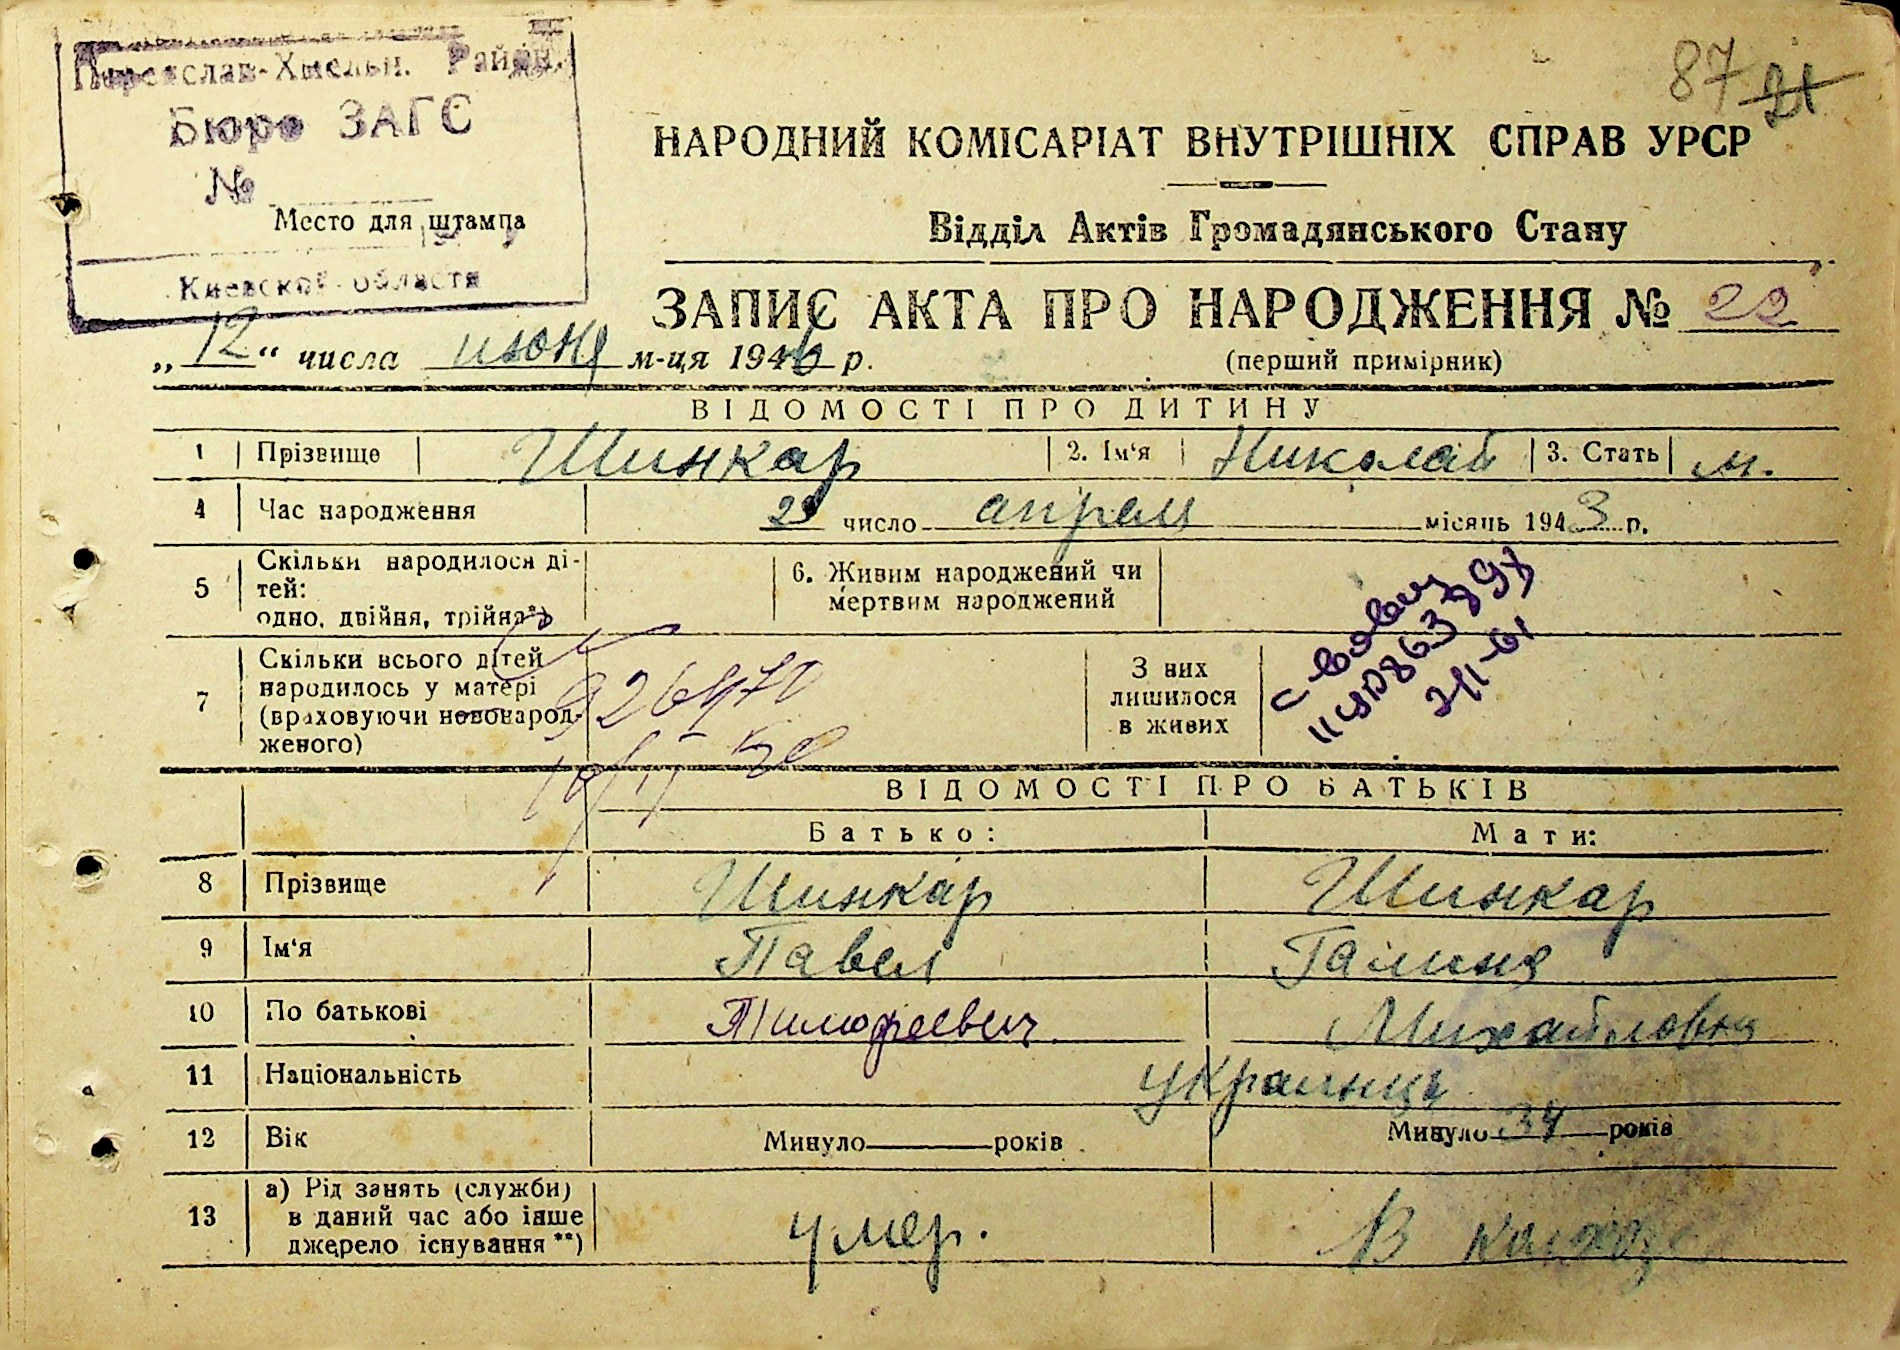 87 21
Переяслав-Хмельн. Район.
Бюро ЗАГС
№
Место для штампа
Киевской области
НАРОДНИЙ КОМІСАРІАТ ВНУТРІШНІХ СПРАВ УРСР
Відділ Актів Громадянського Стану
ЗАПИС АКТА ПРО НАРОДЖЕННЯ № 22
„ 12 “ числа июня м-ця 1946 р.
(перший примірник)
ВІДОМОСТІ ПРО ДИТИНУ
1 Прізвище Шинкар 2. Ім'я Николай 3. Стать м.
4 Час народження число апреля місяць 1943 р.
5 Скільки народилося ді-
тей:
одно, двійня, трійня*)
6. Живим народжений чи
мертвим народжений
7 Скільки всього дітей
народилось у матері
(враховуючи новонарод-
женого)
З них
лишилося
в живих
ВІДОМОСТІ ПРО БАТЬКІВ
Батько: Мати:
8 Прізвище Шинкар Шинкар
9 Ім'я Павел Галина
10 По батькові Тимофеевич Михайловна
11 Національність украинцы
12 Вік Минуло років Минуло 34 років
13 а) Рід занять (служби)
в даний час або інше
джерело існування **)
умер. В колхозе